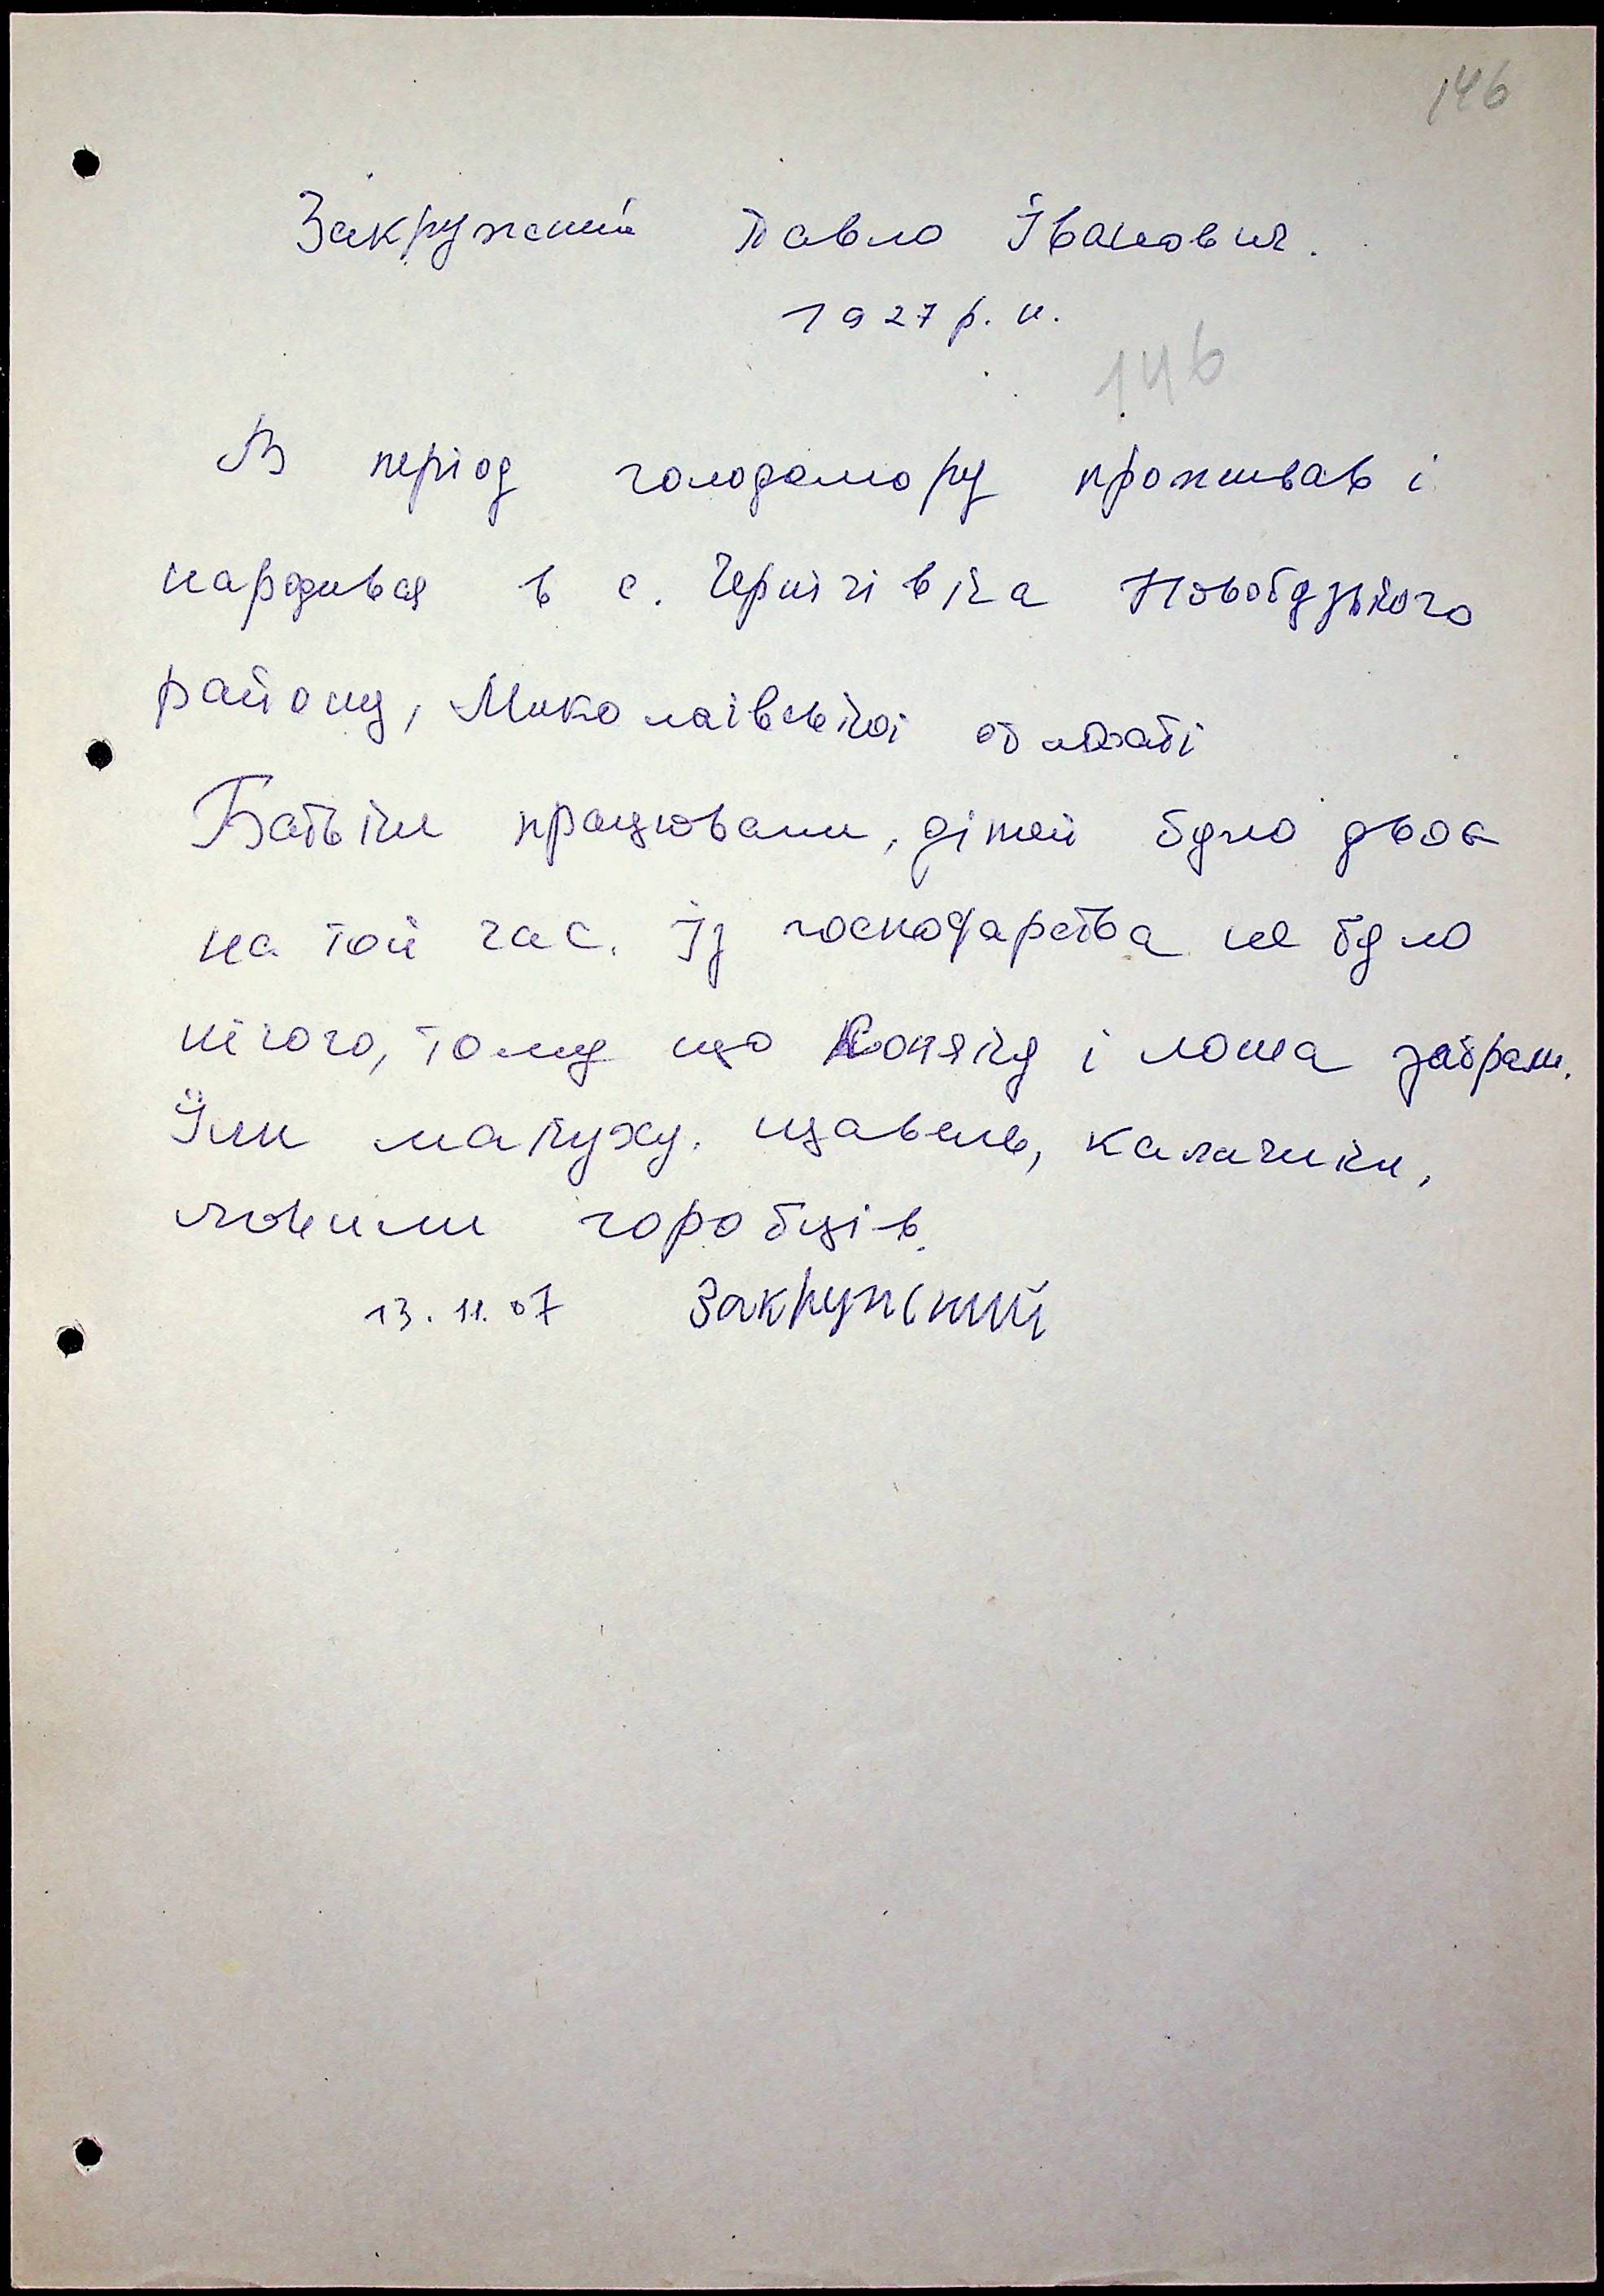 146
Закружний Павло Іванович.
1927 р. н.
146
В період голодомору проживав і
народився в с. Чернігівка Новобузького
району, Миколаївської області
Батьки працювали, дітей було двоє
на той час. Із господарства не було
нічого, тому що конячку і лоша забрали.
Їли макуху, щавель, калачики,
ловили горобців.
13.11.07